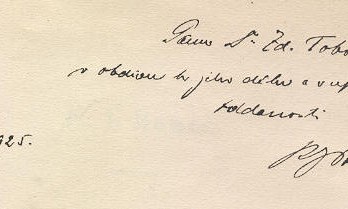 Panu Dr Zd. Tobo
v obdivu k jeho dílu a v up
oddanosti
925.